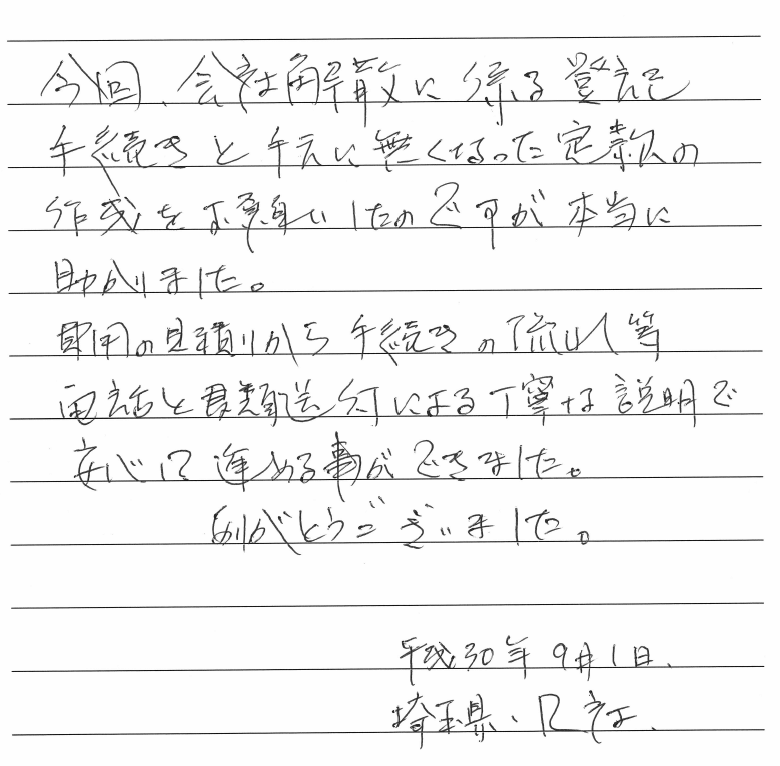 今回、会社解散に係る登記
手続きと手元に無くなった定款の
作成をお願いしたのですが本当に
助かりました。
費用の見積りから手続きの流れ等
電話と書類送付による丁寧な説明で
安心して進める事ができました。
ありがとうございました。
平成30年9月1日.
埼玉県、R社.